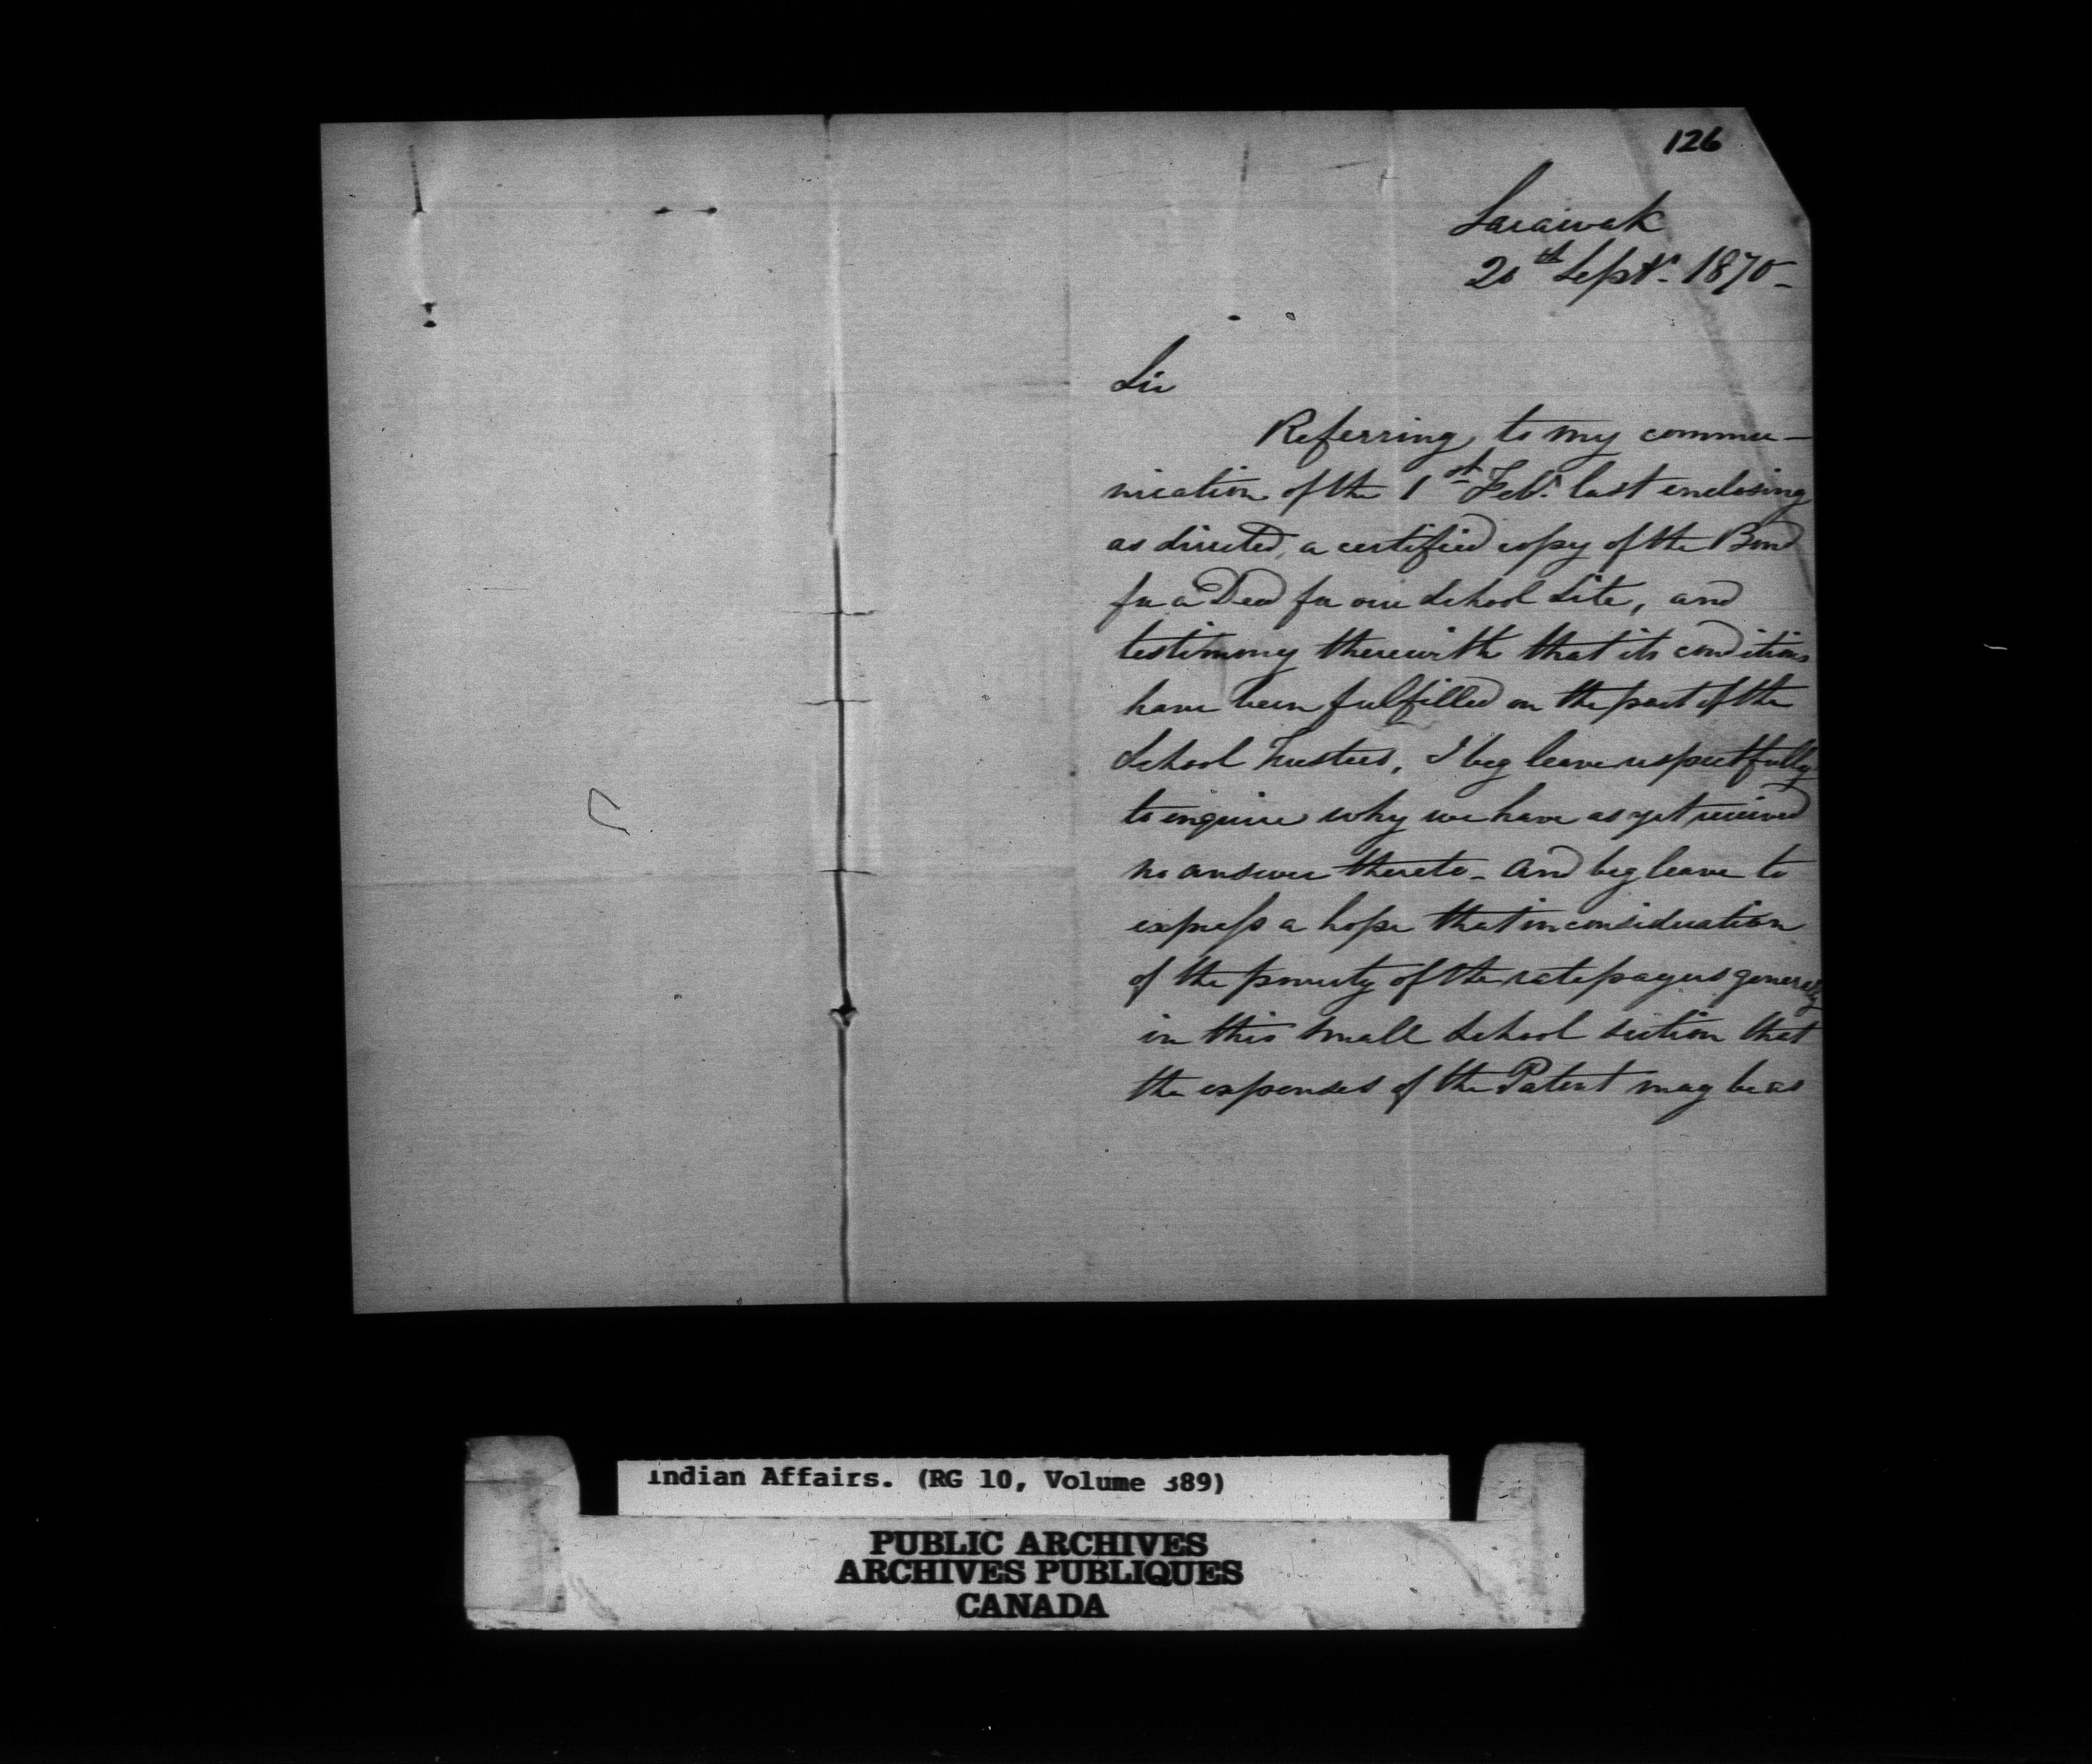 126
Sarawak
20th Septr. 1870-
Sir
Referring to my commu-
nication of the 1st Feby. last enclosing
as directed, a certified copy of the Bond
for a Deed for our School Site, and
testimony therewith that its conditions
have been fulfilled on the part of the
School Trustees, I beg leave respectfully
to enquire why we have as yet received
no answer thereto - and beg leave to
express a hope that in consideration
of the poverty of the ratepayers generally
in this small School section that
the expenses of the Patent may be as
Indian Affairs. (RG 10, Volume 389)
PUBLIC ARCHIVES
ARCHIVES PUBLIQUES
CANADA